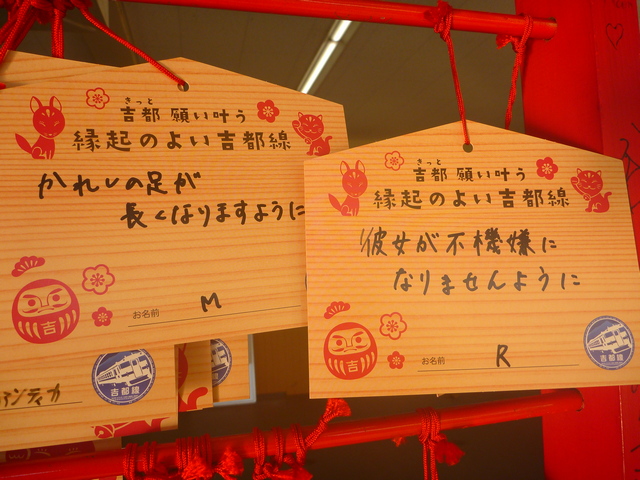 きっと
吉都 願い叶う
縁起のよい吉都線
かれしの足が
長くなりますように
吉
お名前 M
吉都線
ァンティカ
きっと
吉都 願い叶う
縁起のよい吉都線
彼女が不機嫌に
なりませんように
吉
お名前 R
吉都線